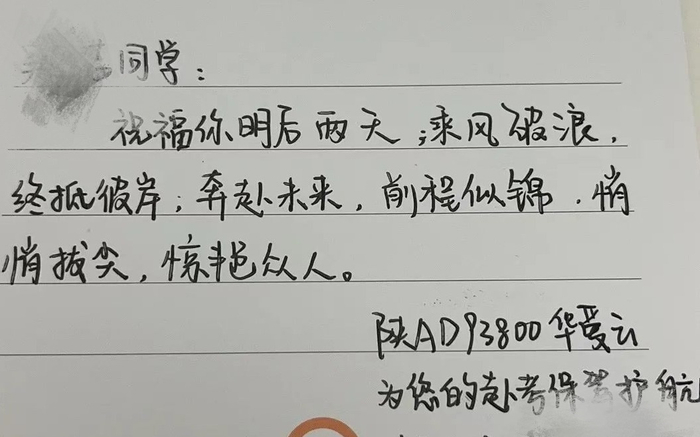 同学：
祝福你明后两天，乘风破浪，
终抵彼岸；奔赴未来，前程似锦．悄
悄拔尖，惊艳众人。
陕AD93800华爱云
为您的赴考保驾护航